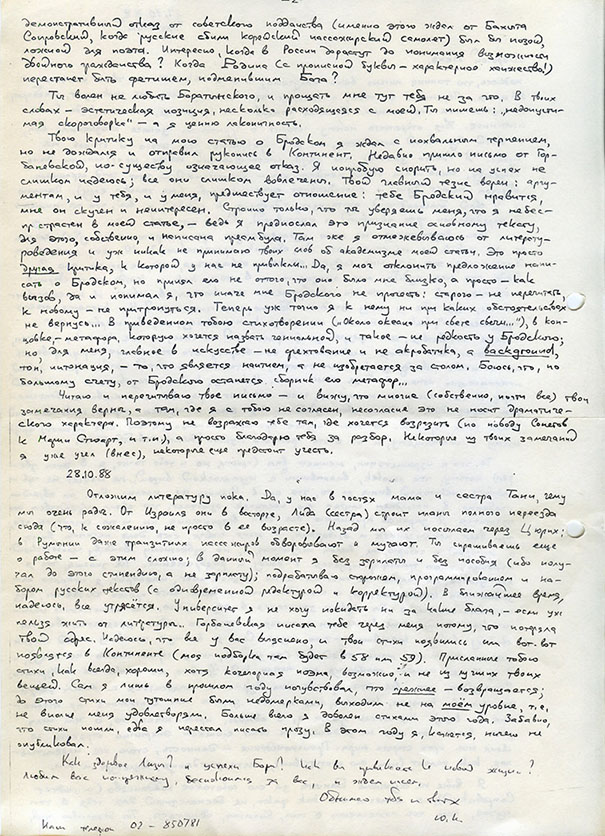 — 2 —
демонстративный отказ от советского подданства (именно этого ждал от Бахыта
Соировский, когда русские сбили корейский пассажирский самолет) был бы позой,
ложной для поэта. Интересно, когда в России дорастут до понимания возможности
двойного гражданства? Когда Родина (с прописной буквы - характерное ханжество!)
перестанет быть фетишем, подменившим Бога?
Ты волен не любить Боратынского, и прощать мне тут тебя не за что. В твоих
словах - эстетическая позиция, несколько расходящаяся с моей. Ты пишешь: „недопусти-
мая скороговорка" - а я ценю лаконичность.
Твою критику на мою статью о Бродском я ждал с похвальным терпением,
но не дождался и отправил рукопись в Континент. Недавно пришло письмо от Гор-
баневской, по-существу означающее отказ. Я попробую спорить, но на успех не
слишком надеюсь; все они слишком вовлечены. Твой главный тезис верен: аргу-
ментам, и у тебя, и у меня, предшествует отношение: тебе Бродский нравится,
мне он скучен и неинтересен. Странно только, что ты уверяешь меня, что я небес-
пристрастен в моей статье, - ведь я предпослал это признание основному тексту,
для этого, собственно, и написана преамбула. Там же я отмежевываюсь от литерату-
роведения и уж никак не принимаю твоих слов об академизме моей статьи. Это просто
другая критика, к которой у нас не привыкли... Да, я мог отклонить предложение напи-
сать о Бродском, но принял его не оттого, что оно было мне близко, а просто - как
вызов, да и понимал я, что иначе мне Бродского не прочесть: старого - не перечитать,
к новому - не притронуться. Теперь уж точно я к нему ни при каких обстоятельствах
не вернусь... В приведенном тобою стихотворении («Около океана, при свете свечи...»), в кон-
цовке, - метафора, которую хочется назвать гениальной, и такое - не редкость у Бродского;
но, для меня, главное в искусстве - не фехтование и не акробатика, а background,
тон, интонация, - то, что является наитием, а не изобретается за столом. Боюсь, что, по
большому счету, от Бродского останется сборник его метафор...
Читаю и перечитываю твое письмо - и вижу, что многие (собственно, почти все) твои
замечания верны, а там, где я с тобою не согласен, несогласие это не носит драматиче-
ского характера. Поэтому не возражаю тебе там, где хочется возразить (по поводу Сонетов
к Марии Стюарт, и т.п.), а просто благодарю тебя за разбор. Некоторые из твоих замечаний
я уже учел (внес), некоторые еще предстоит учесть.
28.10.88
Отложим литературу пока. Да, у нас в гостях мама и сестра Тани, чему
мы очень рады. От Израиля они в восторге, Лида (сестра) строит планы полного переезда
сюда (что, к сожалению, не просто в ее возрасте). Назад мы их посылаем через Цюрих;
в Румынии даже транзитных пассажиров обворовывают и мучают. Ты спрашиваешь еще
о работе - с этим сложно; в данный момент я без зарплаты и без пособия (ибо полу-
чал до этого стипендию, а не зарплату); подрабатываю сторожем, программированием и на-
бором русских текстов (с одновременной редактурой и корректурой). В ближайшее время,
надеюсь, все утрясётся. Университет я не хочу покидать ни за какие блага, - если уж
нельзя жить от литературы. Горбаневская писала тебе через меня потому, что потеряла
твой адрес. Надеюсь, что все у вас выяснено, и твои стихи появились или вот-вот
появятся в Континенте (моя подборка там будет в 58 или 59). Присланные тобою
стихи, как всегда, хороши, хотя категория поэма, возможно, и не из лучших твоих
вещей. Сам я лишь в прошлом году почувствовал, что прежнее - возвращается;
до этого стихи мои тутошние были недомерками, выходили не на моём уровне, т.е.
не вполне меня удовлетворяли. Больше всего я доволен стихами этого года. Забавно,
что стихи пошли, едва я перестал писать прозу. В этом году я, кажется, ничего не
опубликовал.
Как здоровье Лизы? и успехи Бори? Как вы привыкаете к новой жизни?
Любим вас по-прежнему, беспокоимся за вас, и ждем писем.
Обнимаю тебя и твоих
Ю.К.
Наш телефон 02 - 850781